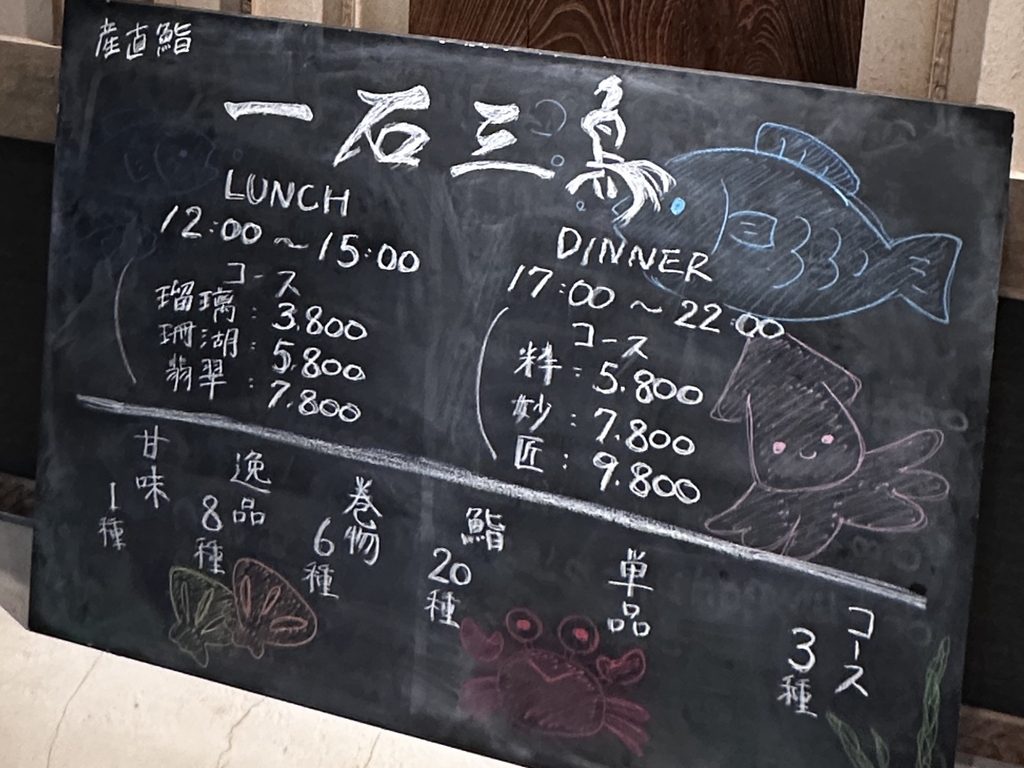 産直鮨
一石三鳥
LUNCH
12:00～15:00
コース
瑠璃：3.800
珊湖：5.800
翡翠：7.800
DINNER
17:00～22:00
コース
粋：5.800
妙：7.800
匠：9.800
コース
3種
単品
鮨
20種
巻物
6種
逸品
8種
甘味
1種